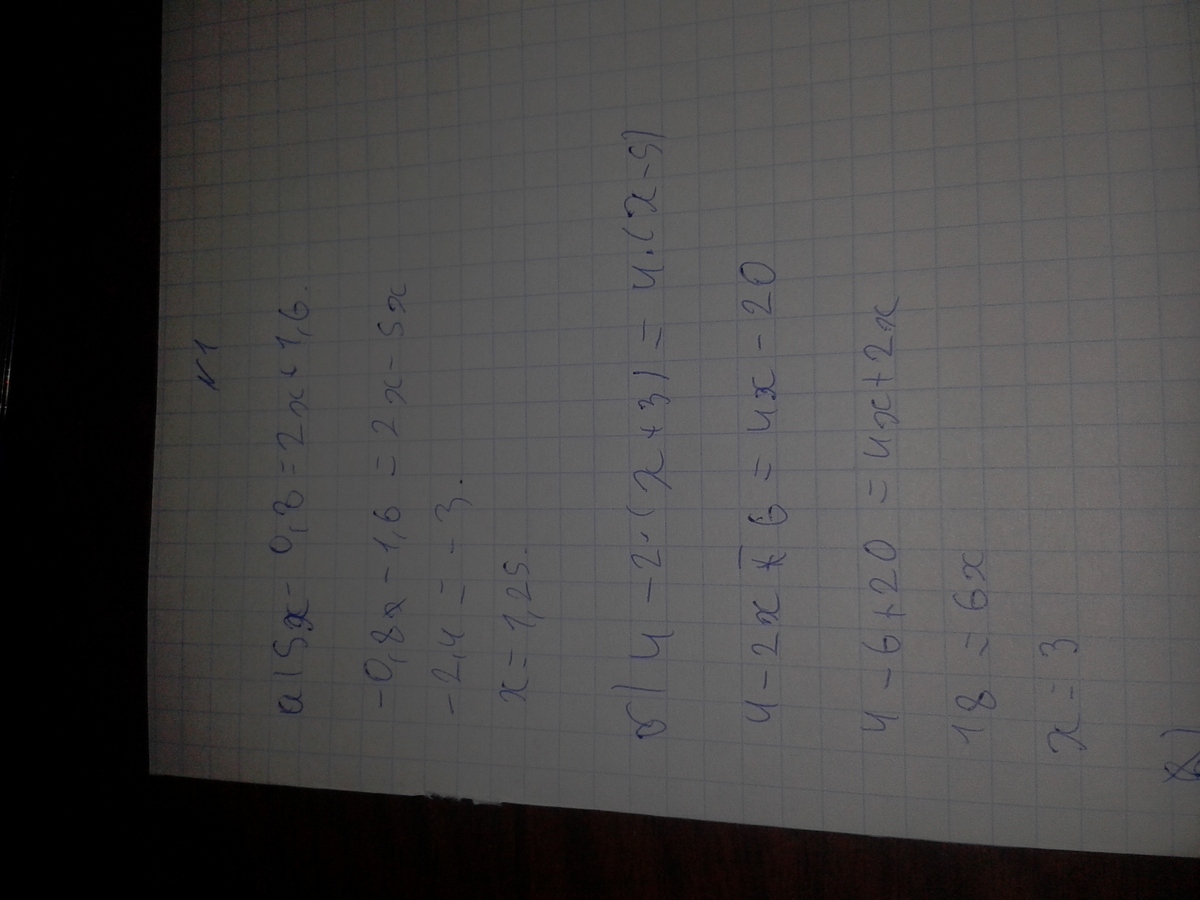 №1
а) 5x - 0,8 = 2x + 1,6.
-0,8x - 1,6 = 2x - 5x
-2,4 = -3.
x = 1,25.
б) 4 - 2·(x + 3) = 4·(x - 5)
4 - 2x - 6 = 4x - 20
4 - 6 + 20 = 4x + 2x
18 = 6x
x = 3